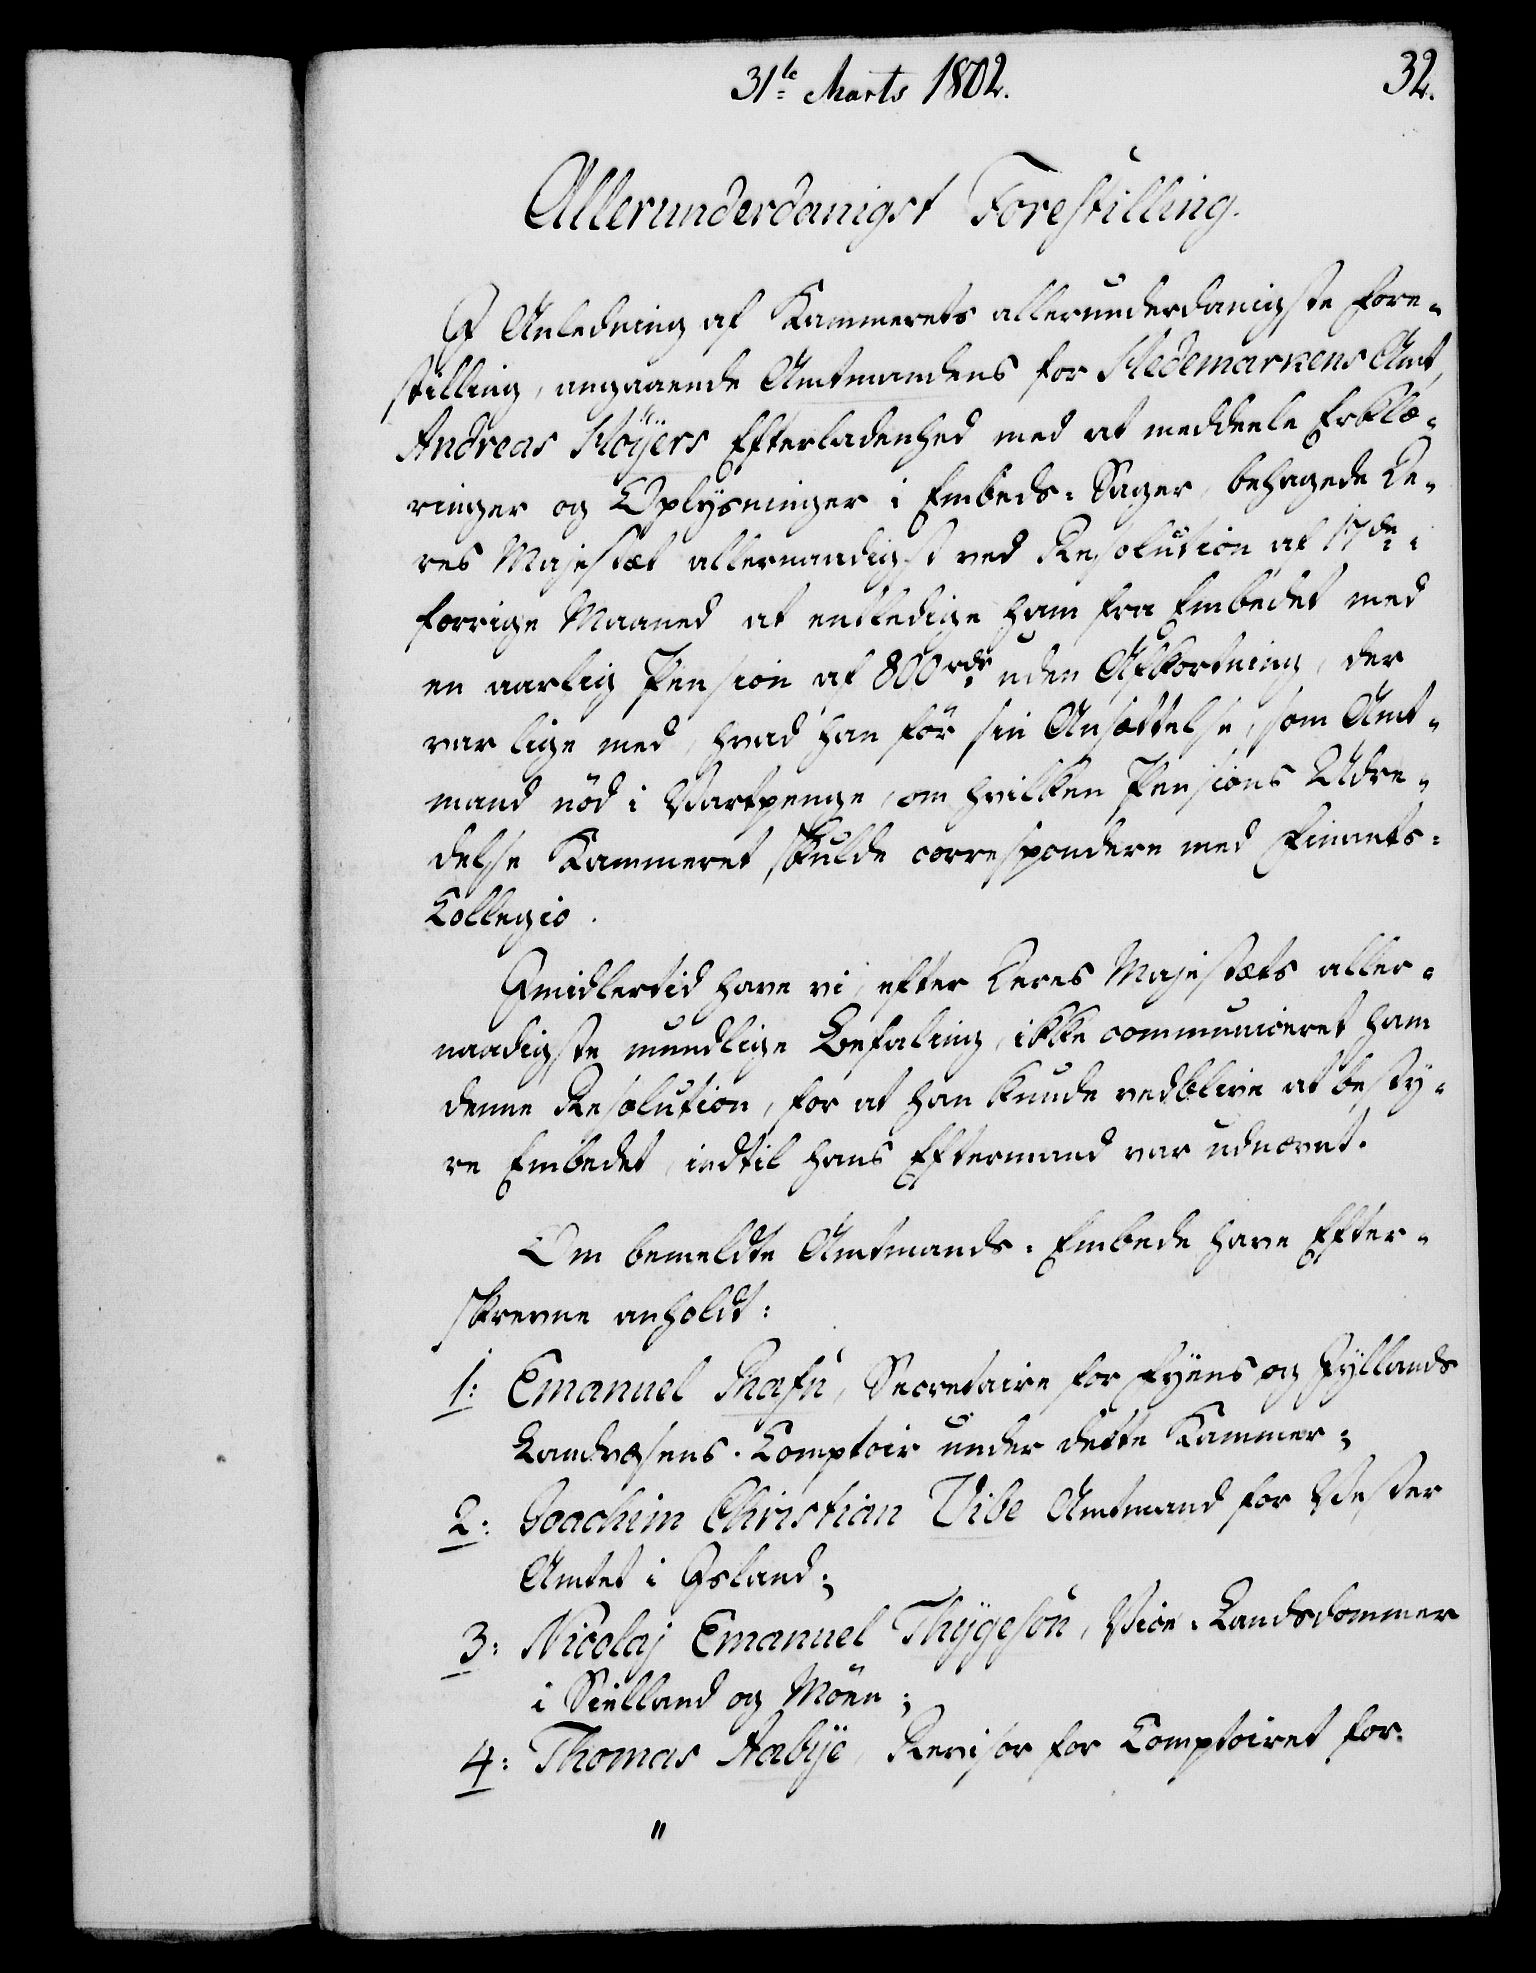 31te Marts 1802.
32.
Allerunderdanigst Forestilling.
I Anledning af Kammerets allerunderdanigste Fore-
stilling, angaaende Amtmandens for Hedemarkens Amt,
Andreas Höÿers Efterladenhed med at meddeele Erklæ-
ringer og Oplysninger i Embeds-Sager, behagede De-
res Majestæt allernaadigst ved Resolution af 17de i
forrige Maaned at entledige ham fra Embedet med
en aarlig Pension af 800 rdr uden Afkortning, der
var lige med, hvad han för sin Ansættelse, som Amt-
mand nöd i Vartpenge, om hvilken Pensions Udre-
delse Kammeret skulde correspondere med Finants-
Collegio.
Imidlertid have vi, efter Deres Majestæts aller-
naadigste mundlige Befaling, ikke communiceret ham
denne Resolution, for at han kunde vedblive at besty-
re Embedet, indtil hans Eftermand var udnævnt.
Om bemeldte Amtmands-Embede have Efter-
skrevne anholdt:
1: Emanuel Thafn, Secretaire for Fyens og Jyllands
Landvæsens-Comptoir under dette Kammer;
2: Joachim Christian Vibe Amtmand for Vester
Amtet i Island;
3: Nicolaj Emanuel Thÿgeson, Vice-Landsdommer
i Siælland og Möen;
4: Thomas Aabÿe, Revisor for Comptoiret for
"